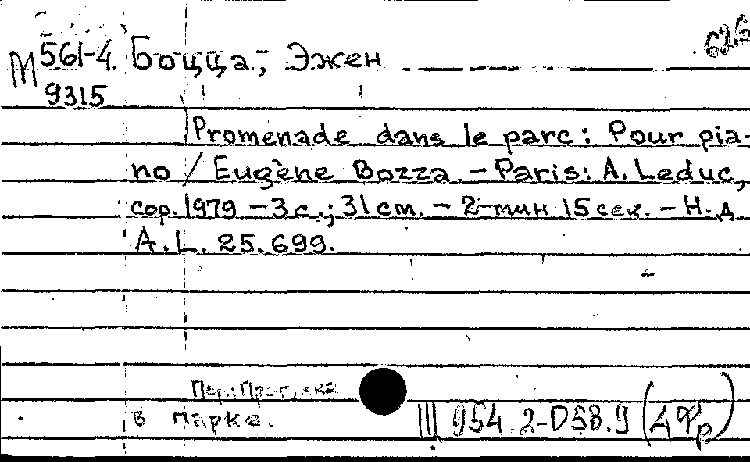 М 561-4. Боцца, Эжен 626
9315
Promenade dans le parc: Pour pia-
no / Eugène Bozza. – Paris: A. Leduc,
cop. 1979 – 3 с.; 31 cm. – 2 мин 15 сек. – Н. д.
A. L. 25.699.
Пер: Прогулка
в парке.
III 954.2-D58.9 (4Фр)